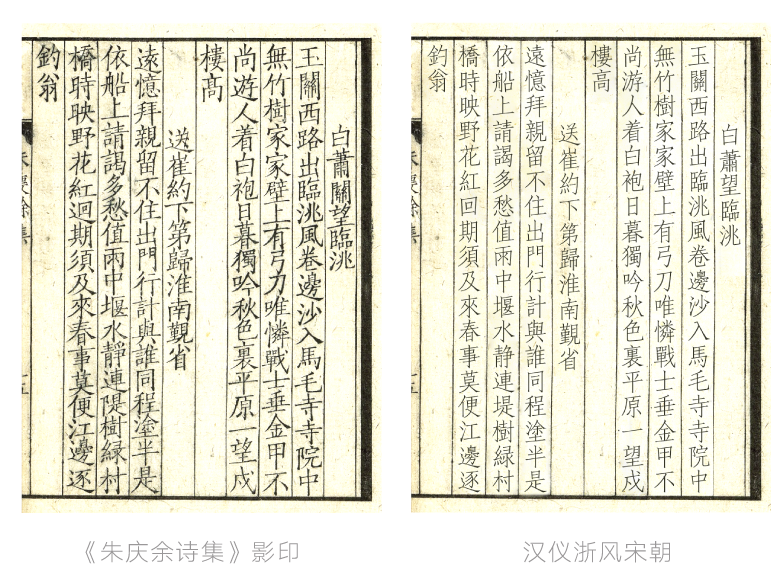 白蕭關望臨洮
玉關西路出臨洮風卷邊沙入馬毛寺寺院中
無竹樹家家壁上有弓刀唯憐戰士垂金甲不
尚遊人着白袍日暮獨吟秋色裏平原一望戍
樓髙
送崔約下第歸淮南覲省
遠憶拜親留不住出門行計與誰同程塗半是
依船上請謁多愁值雨中堰水靜連隄樹緑村
橋時映野花紅迴期須及來春事莫便江邊逐
釣翁
《朱庆余诗集》影印
白蕭望臨洮
玉關西路出臨洮風卷邊沙入馬毛寺寺院中
無竹樹家家壁上有弓刀唯憐戰士垂金甲不
尚游人着白袍日暮獨吟秋色裏平原一望戍
樓髙
送崔約下第歸淮南覲省
遠憶拜親留不住出門行計與誰同程塗半是
依船上請謁多愁值雨中堰水静連堤樹緑村
橋時映野花紅回期須及來春事莫便江邊逐
釣翁
汉仪浙风宋朝